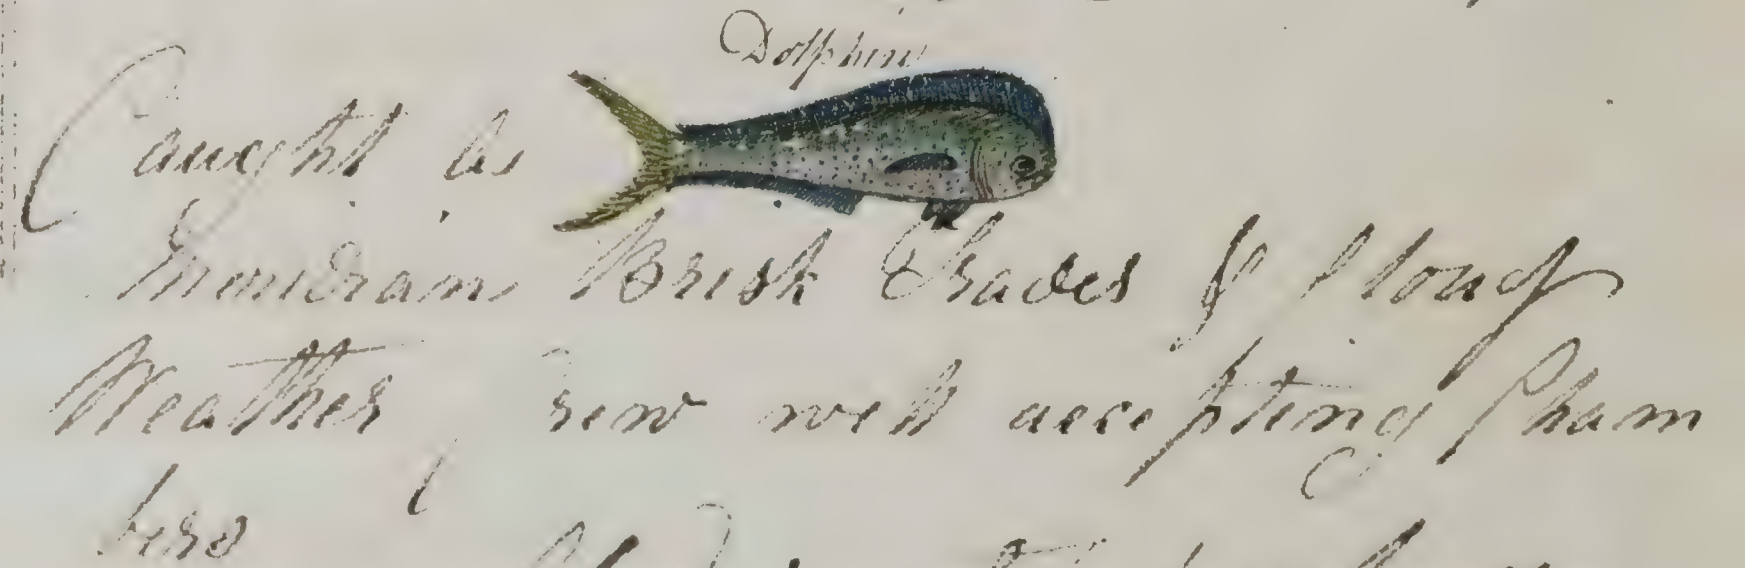 Dolphin
Caught as
Meridian Brisk Trades & Cloudy
Weather, crew well accepting Cham
bers